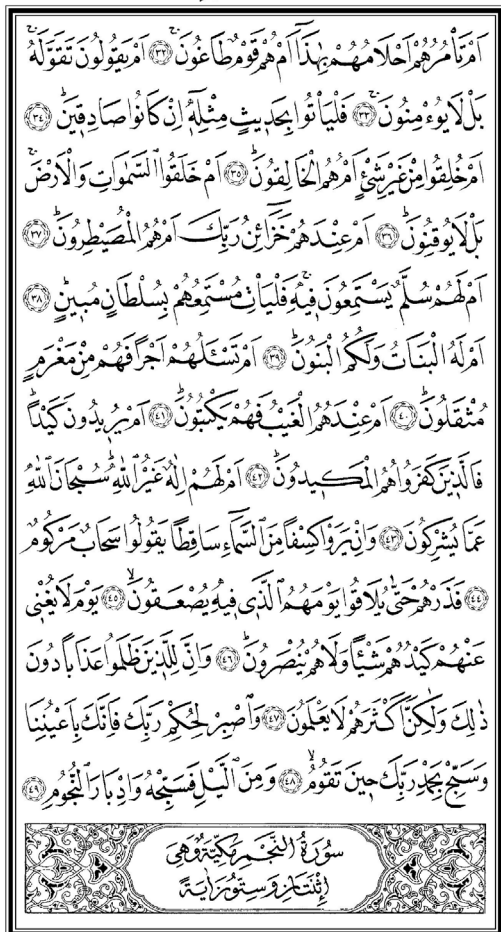 اَمْ تَأْمُرُهُمْ اَحْلَامُهُمْ بِهٰذَٓا اَمْ هُمْ قَوْمٌ طَاغُونَۚ ﴿٣٢﴾ اَمْ يَقُولُونَ تَقَوَّلَهُۚ
بَلْ لَا يُؤْمِنُونَۚ ﴿٣٣﴾ فَلْيَأْتُوا بِحَد۪يثٍ مِثْلِه۪ٓ اِنْ كَانُوا صَادِق۪ينَۜ ﴿٣٤﴾
اَمْ خُلِقُوا مِنْ غَيْرِ شَيْءٍ اَمْ هُمُ الْخَالِقُونَۜ ﴿٣٥﴾ اَمْ خَلَقُوا السَّمٰوَاتِ وَالْاَرْضَۚ
بَلْ لَا يُوقِنُونَۜ ﴿٣٦﴾ اَمْ عِنْدَهُمْ خَزَٓائِنُ رَبِّكَ اَمْ هُمُ الْمُصَيْطِرُونَۜ ﴿٣٧﴾
اَمْ لَهُمْ سُلَّمٌ يَسْتَمِعُونَ ف۪يهِۚ فَلْيَأْتِ مُسْتَمِعُهُمْ بِسُلْطَانٍ مُب۪ينٍۜ ﴿٣٨﴾
اَمْ لَهُ الْبَنَاتُ وَلَكُمُ الْبَنُونَۜ ﴿٣٩﴾ اَمْ تَسْـَٔلُهُمْ اَجْرًا فَهُمْ مِنْ مَغْرَمٍ
مُثْقَلُونَۜ ﴿٤٠﴾ اَمْ عِنْدَهُمُ الْغَيْبُ فَهُمْ يَكْتُبُونَۜ ﴿٤١﴾ اَمْ يُر۪يدُونَ كَيْدًاۜ
فَالَّذ۪ينَ كَفَرُوا هُمُ الْمَك۪يدُونَۜ ﴿٤٢﴾ اَمْ لَهُمْ اِلٰهٌ غَيْرُ اللّٰهِۜ سُبْحَانَ اللّٰهِ
عَمَّا يُشْرِكُونَ ﴿٤٣﴾ وَاِنْ يَرَوْا كِسْفًا مِنَ السَّمَٓاءِ سَاقِطًا يَقُولُوا سَحَابٌ مَرْكُومٌ
﴿٤٤﴾ فَذَرْهُمْ حَتّٰى يُلَاقُوا يَوْمَهُمُ الَّذ۪ي ف۪يهِ يُصْعَقُونَۙ ﴿٤٥﴾ يَوْمَ لَا يُغْن۪ي
عَنْهُمْ كَيْدُهُمْ شَيْـًٔا وَلَا هُمْ يُنْصَرُونَۜ ﴿٤٦﴾ وَاِنَّ لِلَّذ۪ينَ ظَلَمُوا عَذَابًا دُونَ
ذٰلِكَ وَلٰكِنَّ اَكْثَرَهُمْ لَا يَعْلَمُونَ ﴿٤٧﴾ وَاصْبِرْ لِحُكْمِ رَبِّكَ فَاِنَّكَ بِاَعْيُنِنَا
وَسَبِّحْ بِحَمْدِ رَبِّكَ ح۪ينَ تَقُومُۙ ﴿٤٨﴾ وَمِنَ الَّيْلِ فَسَبِّحْهُ وَاِدْبَارَ النُّجُومِ ﴿٤٩﴾
سُورَةُ النَّجْمِ مَكِّيَّةٌ وَهِيَ
اِثْنَتَانِ وَسِتُّونَ اٰيَةً